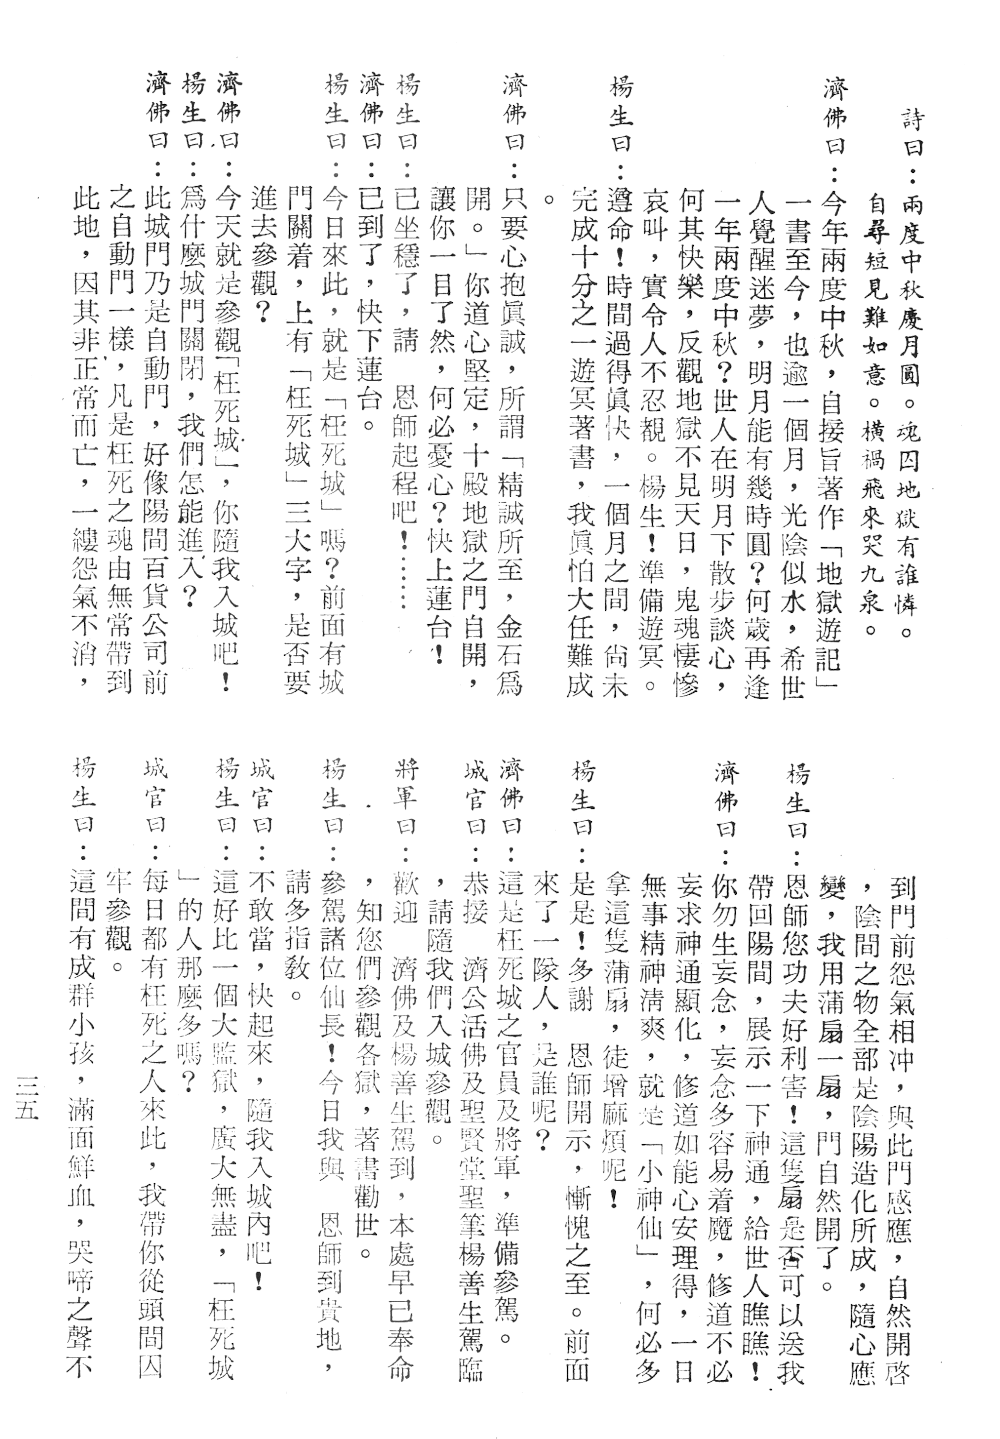 詩曰：兩度中秋慶月圓。魂囚地獄有誰憐。
自尋短見難如意。橫禍飛來哭九泉。
濟佛曰：今年兩度中秋，自接旨著作「地獄遊記」
一書至今，也逾一個月，光陰似水，希世
人覺醒迷夢，明月能有幾時圓？何歲再逢
一年兩度中秋？世人在明月下散步談心，
何其快樂，反觀地獄不見天日，鬼魂悽慘
哀叫，實令人不忍覩。楊生！準備遊冥。
楊生曰：遵命！時間過得眞快，一個月之間，尙未
完成十分之一遊冥著書，我眞怕大任難成
。
濟佛曰：只要心抱眞誠，所謂「精誠所至，金石爲
開。」你道心堅定，十殿地獄之門自開，
讓你一目了然，何必憂心？快上蓮台！
楊生曰：已坐穩了，請　恩師起程吧！……
濟佛曰：已到了，快下蓮台。
楊生曰：今日來此，就是「枉死城」嗎？前面有城
門關着，上有「枉死城」三大字，是否要
進去參觀？
濟佛曰：今天就是參觀「枉死城」，你隨我入城吧！
楊生曰：爲什麼城門關閉，我們怎能進入？
濟佛曰：此城門乃是自動門，好像陽間百貨公司前
之自動門一樣，凡是枉死之魂由無常帶到
此地，因其非正常而亡，一縷怨氣不消，
到門前怨氣相冲，與此門感應，自然開啓
，陰間之物全部是陰陽造化所成，隨心應
變，我用蒲扇一扇，門自然開了。
楊生曰：恩師您功夫好利害！這隻扇是否可以送我
帶回陽間，展示一下神通，給世人瞧瞧！
濟佛曰：你勿生妄念，妄念多容易着魔，修道不必
妄求神通顯化，修道如能心安理得，一日
無事精神淸爽，就是「小神仙」，何必多
拿這隻蒲扇，徒增麻煩呢！
楊生曰：是是！多謝　恩師開示，慚愧之至。前面
來了一隊人，是誰呢？
濟佛曰：這是枉死城之官員及將軍，準備參駕。
城官曰：恭接　濟公活佛及聖賢堂聖筆楊善生駕臨
，請隨我們入城參觀。
將軍曰：歡迎　濟佛及楊善生駕到，本處早已奉命
，知您們參觀各獄，著書勸世。
楊生曰：參駕諸位仙長！今日我與　恩師到貴地，
請多指敎。
城官曰：不敢當，快起來，隨我入城內吧！
楊生曰：這好比一個大監獄，廣大無盡，「枉死城
」的人那麼多嗎？
城官曰：每日都有枉死之人來此，我帶你從頭間囚
牢參觀。
楊生曰：這間有成群小孩，滿面鮮血，哭啼之聲不
三五